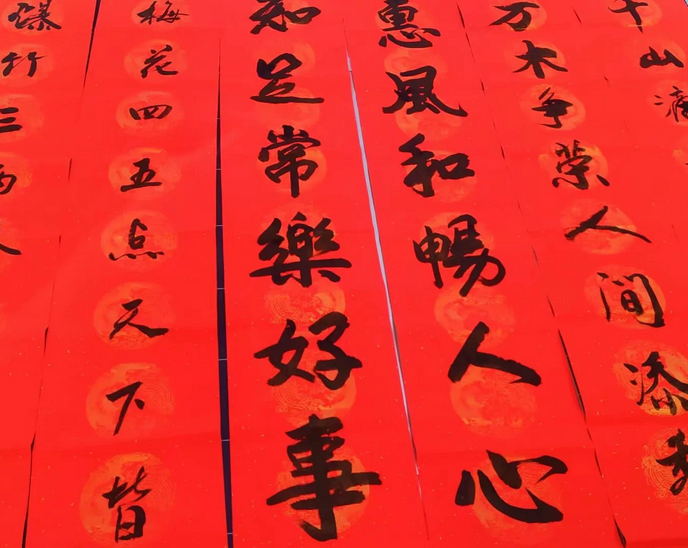 千山滴
万木争荣人间添
惠風和暢人心
知足常樂好事
梅花四五点天下皆
爆竹三两